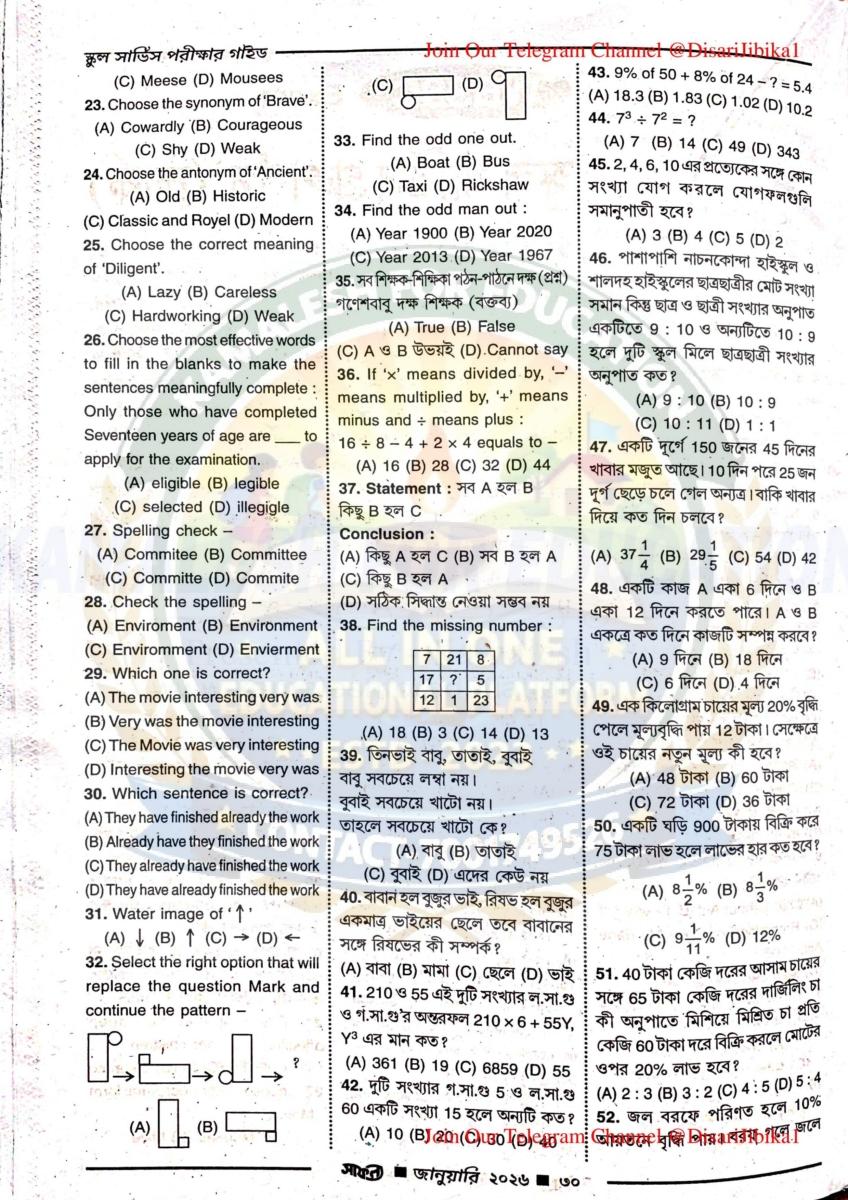 স্কুল সার্ভিস পরীক্ষার গাইড
Join Our Telegram Channel @DisariJibika1
(C) Meese (D) Mousees
23. Choose the synonym of 'Brave'.
(A) Cowardly (B) Courageous
(C) Shy (D) Weak
24. Choose the antonym of 'Ancient'.
(A) Old (B) Historic
(C) Classic and Royel (D) Modern
25. Choose the correct meaning
of 'Diligent'.
(A) Lazy (B) Careless
(C) Hardworking (D) Weak
26. Choose the most effective words
to fill in the blanks to make the
sentences meaningfully complete :
Only those who have completed
Seventeen years of age are ___ to
apply for the examination.
(A) eligible (B) legible
(C) selected (D) illegigle
27. Spelling check –
(A) Commitee (B) Committee
(C) Committe (D) Commite
28. Check the spelling –
(A) Enviroment (B) Environment
(C) Enviromment (D) Envierment
29. Which one is correct?
(A) The movie interesting very was
(B) Very was the movie interesting
(C) The Movie was very interesting
(D) Interesting the movie very was
30. Which sentence is correct?
(A) They have finished already the work
(B) Already have they finished the work
(C) They already have finished the work
(D) They have already finished the work
31. Water image of '↑'
(A) ↓ (B) ↑ (C) → (D) ←
32. Select the right option that will
replace the question Mark and
continue the pattern –
?
(A) (B)
(C) (D)
33. Find the odd one out.
(A) Boat (B) Bus
(C) Taxi (D) Rickshaw
34. Find the odd man out :
(A) Year 1900 (B) Year 2020
(C) Year 2013 (D) Year 1967
35. সব শিক্ষক-শিক্ষিকা পঠন-পাঠনে দক্ষ (প্রশ্ন)
গণেশবাবু দক্ষ শিক্ষক (বক্তব্য)
(A) True (B) False
(C) A ও B উভয়ই (D) Cannot say
36. If '×' means divided by, '–'
means multiplied by, '+' means
minus and ÷ means plus :
16 ÷ 8 – 4 + 2 × 4 equals to –
(A) 16 (B) 28 (C) 32 (D) 44
37. Statement : সব A হল B
কিছু B হল C
Conclusion :
(A) কিছু A হল C (B) সব B হল A
(C) কিছু B হল A
(D) সঠিক সিদ্ধান্ত নেওয়া সম্ভব নয়
38. Find the missing number :
7 21 8
17 ? 5
12 1 23
(A) 18 (B) 3 (C) 14 (D) 13
39. তিনভাই বাবু, তাতাই, বুবাই
বাবু সবচেয়ে লম্বা নয়।
বুবাই সবচেয়ে খাটো নয়।
তাহলে সবচেয়ে খাটো কে?
(A) বাবু (B) তাতাই
(C) বুবাই (D) এদের কেউ নয়
40. বাবান হল বুজুর ভাই, রিষভ হল বুজুর
একমাত্র ভাইয়ের ছেলে তবে বাবানের
সঙ্গে রিষভের কী সম্পর্ক?
(A) বাবা (B) মামা (C) ছেলে (D) ভাই
41. 210 ও 55 এই দুটি সংখ্যার ল.সা.গু
ও গ.সা.গু'র অন্তরফল 210 × 6 + 55Y,
Y³ এর মান কত?
(A) 361 (B) 19 (C) 6859 (D) 55
42. দুটি সংখ্যার গ.সা.গু 5 ও ল.সা.গু
60 একটি সংখ্যা 15 হলে অন্যটি কত?
(A) 10 (B) 20 (C) 30 (D) 40
43. 9% of 50 + 8% of 24 – ? = 5.4
(A) 18.3 (B) 1.83 (C) 1.02 (D) 10.2
44. 7³ ÷ 7² = ?
(A) 7 (B) 14 (C) 49 (D) 343
45. 2, 4, 6, 10 এর প্রত্যেকের সঙ্গে কোন
সংখ্যা যোগ করলে যোগফলগুলি
সমানুপাতী হবে?
(A) 3 (B) 4 (C) 5 (D) 2
46. পাশাপাশি নাচনকোন্দা হাইস্কুল ও
শালদহ হাইস্কুলের ছাত্রছাত্রীর মোট সংখ্যা
সমান কিন্তু ছাত্র ও ছাত্রী সংখ্যার অনুপাত
একটিতে 9 : 10 ও অন্যটিতে 10 : 9
হলে দুটি স্কুল মিলে ছাত্রছাত্রী সংখ্যার
অনুপাত কত?
(A) 9 : 10 (B) 10 : 9
(C) 10 : 11 (D) 1 : 1
47. একটি দুর্গে 150 জনের 45 দিনের
খাবার মজুত আছে। 10 দিন পরে 25 জন
দুর্গ ছেড়ে চলে গেল অন্যত্র। বাকি খাবার
দিয়ে কত দিন চলবে?
(A) 37 1/4 (B) 29 1/5 (C) 54 (D) 42
48. একটি কাজ A একা 6 দিনে ও B
একা 12 দিনে করতে পারে। A ও B
একত্রে কত দিনে কাজটি সম্পন্ন করবে?
(A) 9 দিনে (B) 18 দিনে
(C) 6 দিনে (D) 4 দিনে
49. এক কিলোগ্রাম চায়ের মূল্য 20% বৃদ্ধি
পেলে মূল্যবৃদ্ধি পায় 12 টাকা। সেক্ষেত্রে
ওই চায়ের নতুন মূল্য কী হবে?
(A) 48 টাকা (B) 60 টাকা
(C) 72 টাকা (D) 36 টাকা
50. একটি ঘড়ি 900 টাকায় বিক্রি করে
75 টাকা লাভ হলে লাভের হার কত হবে?
(A) 8 1/2 % (B) 8 1/3 %
(C) 9 1/11 % (D) 12%
51. 40 টাকা কেজি দরের আসাম চায়ের
সঙ্গে 65 টাকা কেজি দরের দার্জিলিং চা
কী অনুপাতে মিশিয়ে মিশ্রিত চা প্রতি
কেজি 60 টাকা দরে বিক্রি করলে মোটের
ওপর 20% লাভ হবে?
(A) 2 : 3 (B) 3 : 2 (C) 4 : 5 (D) 5 : 4
52. জল বরফে পরিণত হলে 10%
আয়তনে বৃদ্ধি পায় বরফ গলে জলে
Join Our Telegram Channel @DisariJibika1
সাফল্য ■ জানুয়ারি ২০২৬ ■ ৩০
ALL IN ONE
EDUCATIONAL PLATFORM